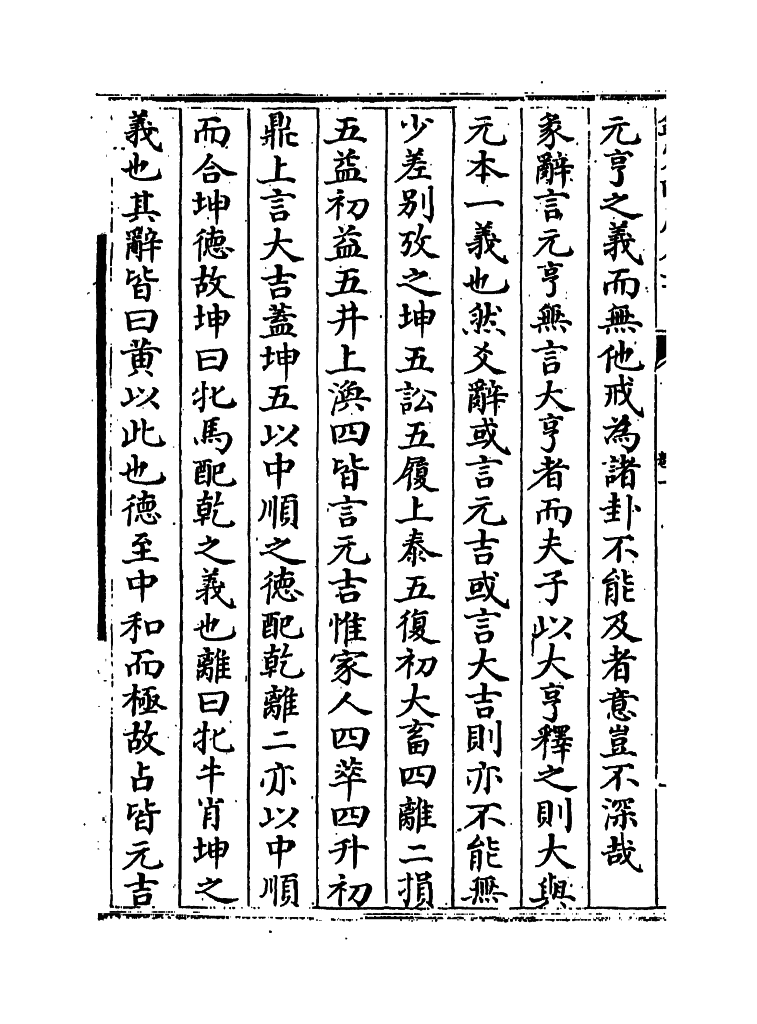 元亨之義而無他戒為諸卦不能及者意豈不深哉
彖辭言元亨無言大亨者而夫子以大亨釋之則大與
元本一義也然爻辭或言元吉或言大吉則亦不能無
少差别攷之坤五訟五履上泰五復初大畜四離二損
五益初益五井上渙四皆言元吉惟家人四萃四升初
鼎上言大吉蓋坤五以中順之德配乾離二亦以中順
而合坤德故坤曰牝馬配乾之義也離曰牝牛肖坤之
義也其辭皆曰黄以此也德至中和而極故占皆元吉